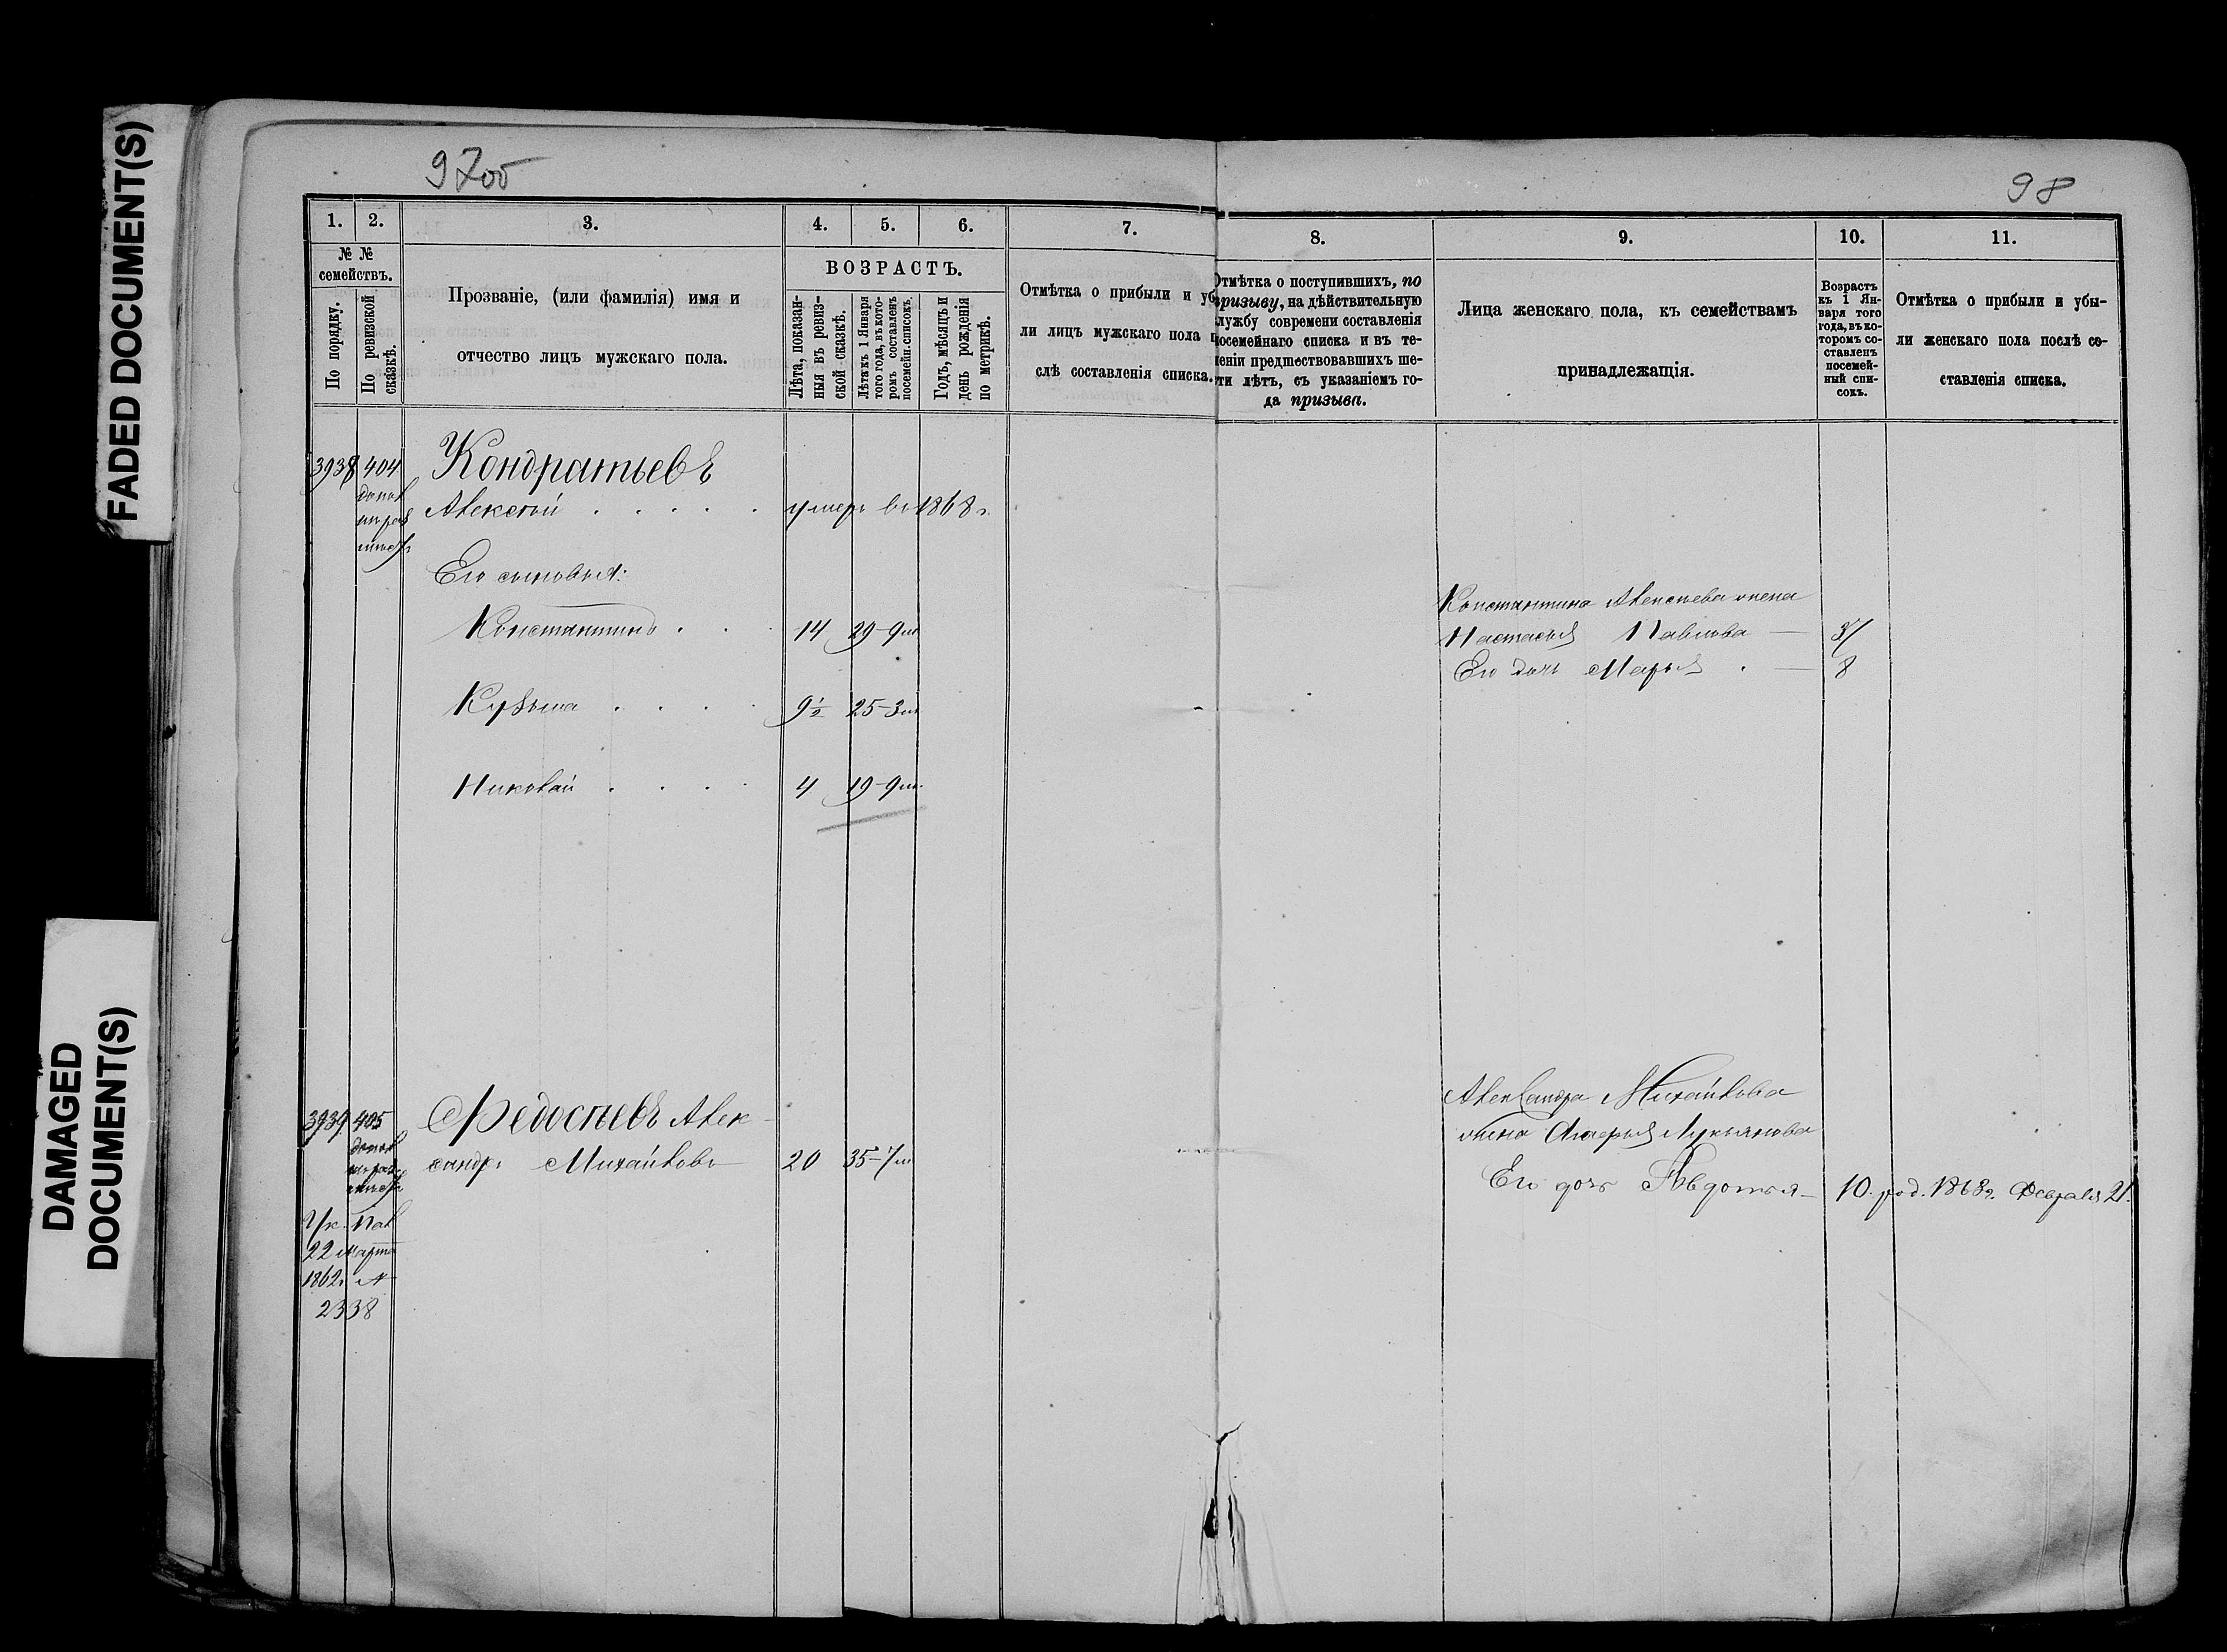 FADED DOCUMENT(S)
DAMAGED
DOCUMENT(S)
98
1.
2.
3.
4.
5.
6.
7.
№ №
семействъ.
По порядку.
По ревизской
сказкѣ.
Прозваніе, (или фамилія) имя и
отчество лицъ мужскаго пола.
ВОЗРАСТЪ.
Лѣта, показан-
ныя въ ревиз-
ской сказкѣ.
Лѣта къ 1 Января
того года, въ кото-
ромъ составленъ
посемейн. списокъ.
Годъ, мѣсяцъ и
день рожденія
по метрикѣ.
Отмѣтка о прибыли и уб
ли лицъ мужскаго пола п
слѣ составленія списка.
8.
9.
10.
11.
Отмѣтка о поступившихъ, по
призыву, на дѣйствительную
службу современи составленія
посемейнаго списка и въ те-
ченіи предшествовавшихъ ше-
сти лѣтъ, съ указаніемъ го-
да призыва.
Лица женскаго пола, къ семействамъ
принадлежащія.
Возрастъ
къ 1 Ян-
варя того
года, въ ко-
торомъ со-
ставленъ
посемей-
ный спи-
сокъ.
Отмѣтка о прибыли и убы-
ли женскаго пола послѣ со-
ставленія списка.
3938 404 Кондратьевъ
Алексѣй умеръ въ 1868 г.
Его сыновья:
Константинъ 14 29-9 м
Кузьма 9½ 25-3 м
Николай 4 19-9 м.
Константина Алексѣева жена
Настасья Павлова
Его дочь Марья 8
3939 405 Федосѣевъ Алек-
сандръ Михайловъ 20 35-7 м
Ук. Пал
22 марта
1862 г. №
2338
Александра Михайлова
жена Лукьянова
Его дочь Авдотья 10 род. 1868 г. Февраля 21.